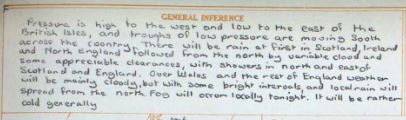 GENERAL INFERENCE
Pressure is high to the west and low to the east of the
British Isles, and troughs of low pressure are moving South
across the country. There will be rain at first in Scotland, Ireland
and North England followed from the north by variable cloud and
some appreciable clearances, with showers in north and east of
Scotland and England. Over Wales and the rest of England weather
will be mainly cloudy, but with some bright intervals, and local rain will
spread from the north. Fog will occur locally tonight. It will be rather
cold generally